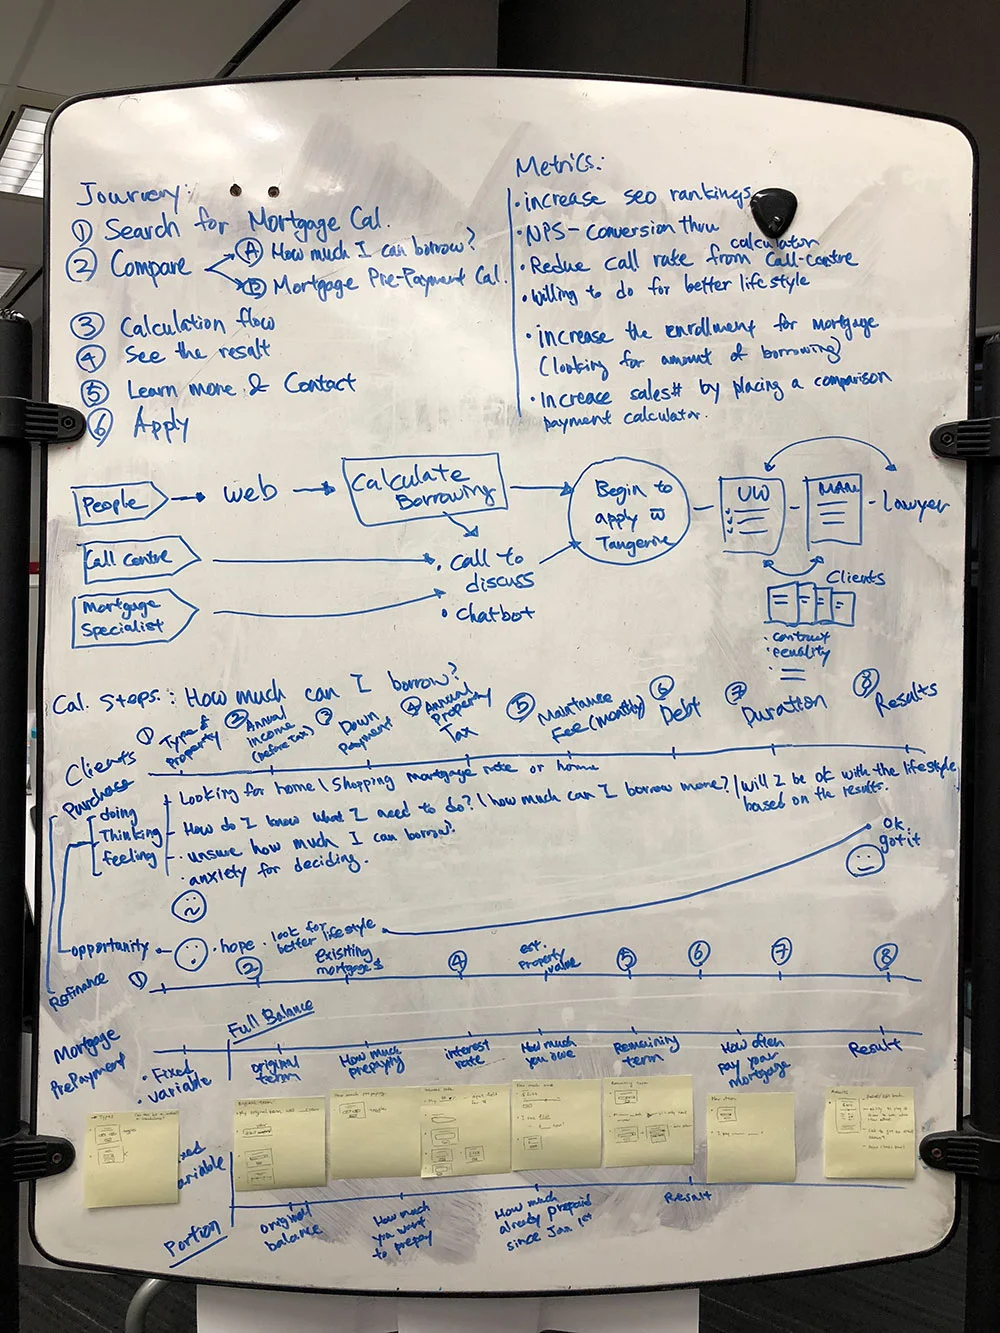 Journey:
① Search for Mortgage Cal.
② Compare
Ⓐ How much I can borrow?
Ⓑ Mortgage Pre-Payment Cal.
③ Calculation flow
④ See the result
⑤ Learn more & Contact
⑥ Apply
Metrics:
· increase seo rankings
· NPS - Conversion thru
calculator
· Redue call rate from Call-Centre
· Willing to do for better life style
· increase the enrollment for mortgage
(looking for amount of borrowing)
· Increase sales# by placing a comparison
payment calculator.
People
web
Calculate
Borrowing
Begin to
apply w
Tangerine
UW
Lawyer
Call Centre
· call to
discuss
· Chatbot
Mortgage
Specialist
Clients
· contract
· penality
Cal. Steps: How much can I borrow?
① Type of
Property
② Annual
Income
(before Tax)
③ Down
Payment
④ Annual
Property
Tax
⑤ Maintance
Fee (monthly)
⑥ Debt
⑦ Duration
⑧ Results
Clients
Purchase
doing
Thinking
feeling
· Looking for home / Shopping mortgage rate or home
· How do I know what I need to do? / how much can I borrow more? / Will I be ok with the lifestyle
based on the results.
· unsure how much I can borrow?
· anxiety for deciding.
ok
got it
opportunity
· hope
· look for
better lifestyle
Refinance
①
②
existing
mortgage $
④
est.
Property
value
⑤
⑥
⑦
⑧
Full Balance
Mortgage
PrePayment
· Fixed
· variable
original
term
How much
prepaying
interest
rate
How much
you owe
Remaining
term
How often
pay your
mortgage
Result
Portion
original
balance
How much
you want
to prepay
How much
already prepaid
since Jan 1st
Result